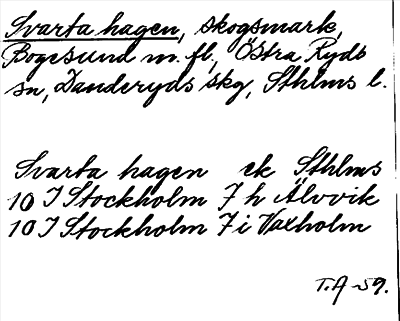 Svarta hagen, skogsmark,
Bogesund m. fl., Östra Ryds
sn, Danderyds skg, Sthlms l.
Svarta hagen ek Sthlms
10 I Stockholm 7 h Älvvik
10 I Stockholm 7 i Vaxholm
T.A -59.